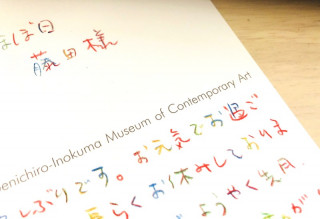 ほぼ日
藤田様
enichiro-Inokuma Museum of Contemporary Art
しぶりです。お元気でお過ご
らくお休みしておりま
ようやく先月
が